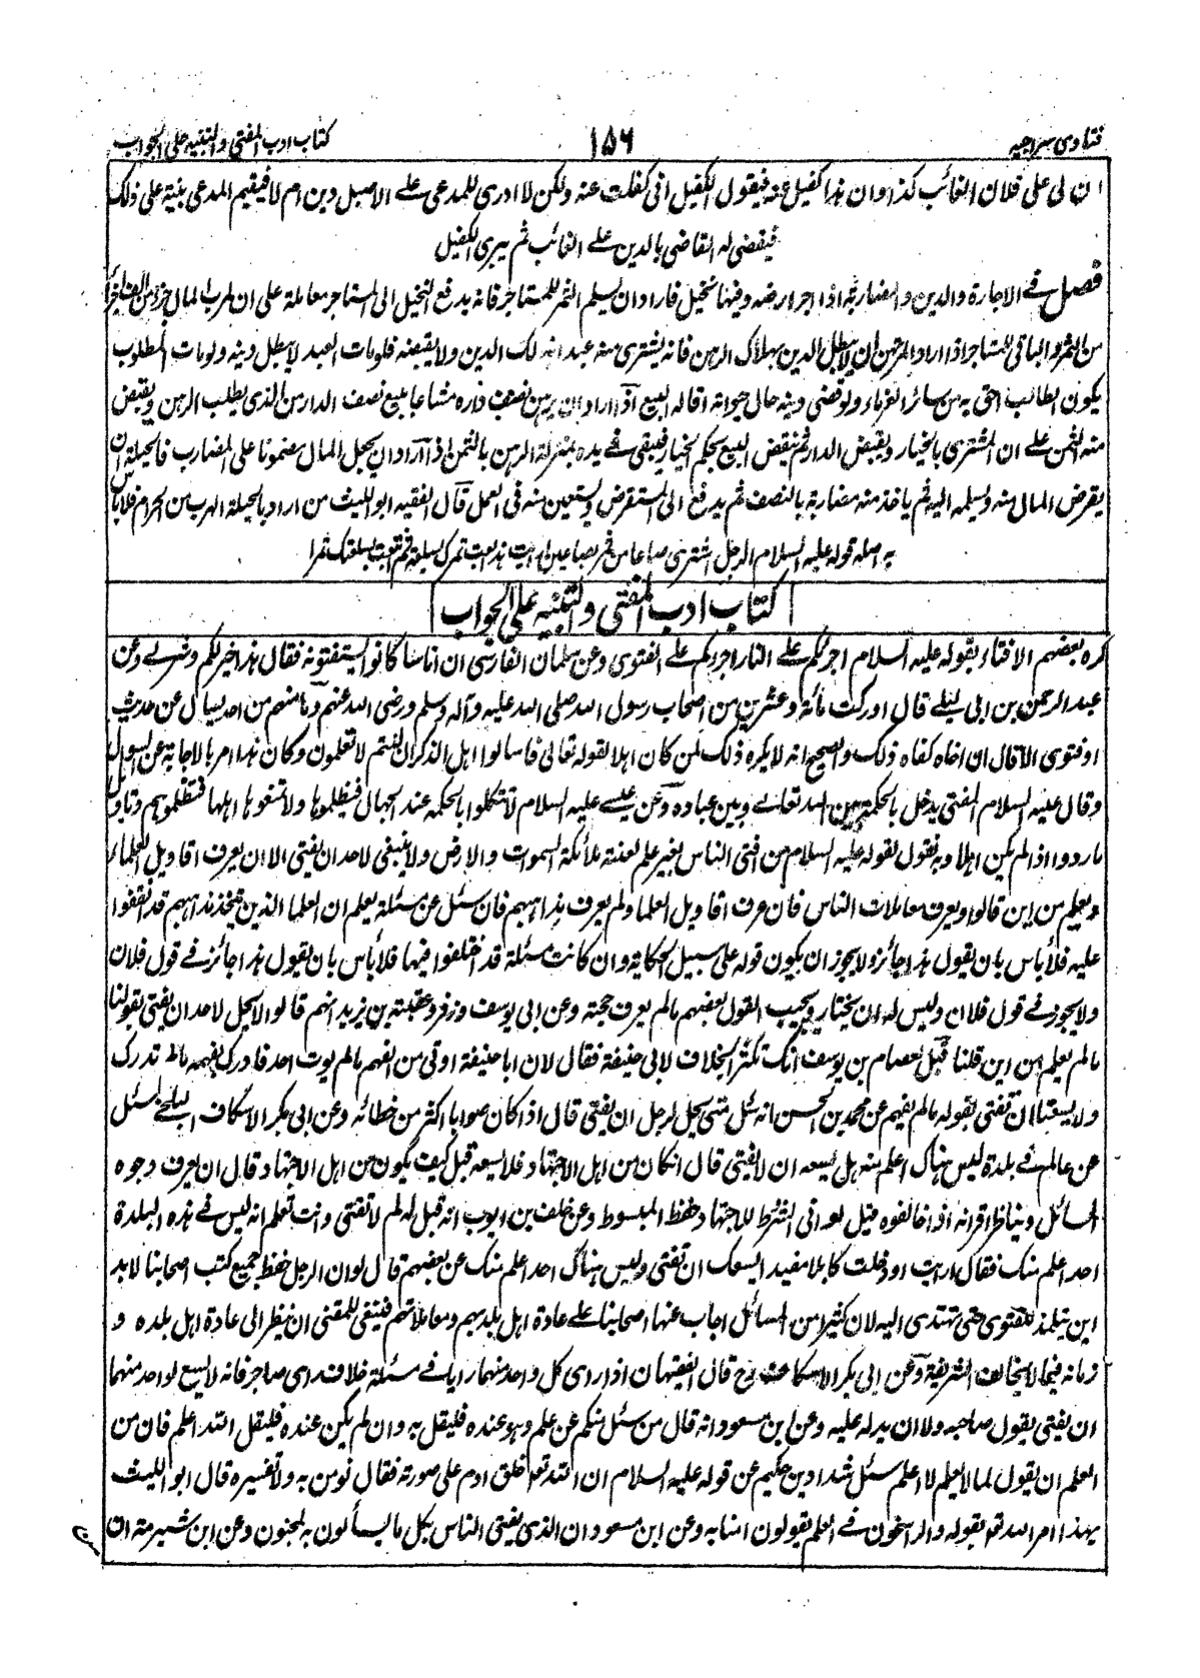 فتاوى سراجيه
١٥٦
كتاب ادب المفتى والتنبيه على الجواب
ان لى على فلان الغائب كذا وان هذا كفيل عنه فيقول الكفيل انى كفلت عنه ولكن لا ادرى للمدعى على الاصيل دين ام لا فيقيم المدعى بينة على ذلك
فيقضى له القاضى بالدين على الغائب ثم يبرى الكفيل
فصل فى الاجارة والدين والمضاربة اذا اجر ارضه وفيها نخيل فاراد ان يسلم الثمر للمستاجر فانه يدفع النخيل الى المستاجر معاملة على ان لرب المال جزء من الف اجزاء
من الثمر والباقى للمستاجر اذا اراد المرتهن ان لا يبطل الدين بهلاك الرهن فانه يشترى منه عبدا له بذلك الدين ولا يقبضه فلو مات العبد لا يبطل دينه ولو مات المطلوب
يكون الطالب احق به من سائر الغرماء ولو قضى دينه حال حيوته اقاله البيع اذا اراد ان يرهن نصف داره مشاعا يبيع نصف الدار من الذى يطلب الرهن ويقبض
منه الثمن على ان المشترى بالخيار ويقبض الدار ثم ينقض البيع بحكم الخيار فيبقى فى يده بمنزلة الرهن بالثمن اذا اراد ان يجعل المال مضمونا على المضارب فالحيلة ان
يقرض المال منه ويسلمه اليه ثم ياخذ منه مضاربة بالنصف ثم يدفع الى المستقرض ويستعين منه فى العمل قال الفقيه ابو الليث من اراد بالحيلة الهرب من الحرام فلا باس
به اصله قوله عليه السلام الرجل اشترى صاعا من تمر بصاعين اربيت هلا بعت تمرك بسلعة ثم ابتعت بسلعتك تمرا
كتاب ادب المفتى والتنبيه على الجواب
كره بعضهم الافتاء بقوله عليه السلام اجرئكم على النار اجرئكم على الفتوى وعن سلمان الفارسى ان اناسا كانوا يستفتونه فقال هذا خير لكم وشر لى وعن
عبد الرحمن بن ابى ليلى قال ادركت مائة وعشرين من اصحاب رسول الله صلى الله عليه وآله وسلم ورضى الله عنهم وما منهم من احد يسال عن حديث
او فتوى الا قال ان اخاه كفاه ذلك والصحيح انه لا يكره ذلك لمن كان اهلا لقوله تعالى فاسالوا اهل الذكر ان كنتم لا تعلمون وكان هذا امر بالاجابة عن السوال
وقال عليه السلام المفتى يدخل بالحكمة بين الله تعالى وبين عباده وعن عيسى عليه السلام لا تتكلوا بالحكمة عند الجهال فيظلموها ولا تمنعوها اهلها فتظلموهم وتاويل
ما رووا اذا لم يكن اهلا وبه نقول لقوله عليه السلام من افتى الناس بغير علم لعنته ملائكة السموات والارض ولا ينبغى لاحد ان يفتى الا ان يعرف اقاويل العلماء
ويعلم من اين قالوا ويعرف معاملات الناس فان عرف اقاويل العلماء ولم يعرف مذاهبهم فان سئل عن مسئلة يعلم ان العلماء الذين يتخذ مذاهبهم قد اتفقوا
عليه فلا باس بان يقول هذا جائز ولا يجوز ان يكون قوله على سبيل الحكاية وان كانت مسئلة قد اختلفوا فيها فلا باس بان يقول هذا جائز فى قول فلان
ولا يجوز فى قول فلان وليس له ان يختار ويجيب القول بعضهم ما لم يعرف حجته وعن ابى يوسف وزفر وعقبة بن يزيد انهم قالوا لا يحل لاحد ان يفتى بقولنا
ما لم يعلم من اين قلنا قيل لعصام بن يوسف انك تكثر الخلاف لابى حنيفة فقال لان ابا حنيفة اوتى من الفهم ما لم يوت احد فادرك بفهمه ما لم ندرك
ولا يسعنا ان نفتى بقوله ما لم نفهم عن محمد بن الحسن انه سئل متى يحل لرجل ان يفتى قال اذا كان صوابا اكثر من خطائه وعن ابى بكر الاسكاف البلخى سئل
عن عالم فى بلدة ليس هناك اعلم منه هل يسعه ان لا يفتى قال ان كان من اهل الاجتهاد فلا يسعه قيل كيف يكون من اهل الاجتهاد قال ان يعرف وجوه
المسائل ويناظر اقرانه اذا خالفوه قيل بعد ادنى الشرط للاجتهاد حفظ المبسوط وعن خلف بن ايوب انه قيل له لم لا تفتى وانت تعلم انه ليس فى هذه البلدة
احد اعلم منك فقال ارايت لو دخلت كابلا مفيدا ايسعك ان تفتى وليس هناك احد اعلم منك عن بعضهم قال لو ان الرجل حفظ جميع كتب اصحابنا لا بد
ان يتلمذ للفتوى حتى يهتدى اليه لان كثيرا من المسائل اجاب عنها اصحابنا على عادة اهل بلدهم ومعاملاتهم فينبغى للمفتى ان ينظر الى عادة اهل بلده و
زمانه فيما لا يخالف الشريعة وعن ابى بكر الاسكاف رح قال الفقيهان اذا راى كل واحد منهما رايا فى مسئلة خلاف راى صاحبه فانه لا يسع لواحد منهما
ان يفتى بقول صاحبه ولا ان يدله عليه وعن ابن مسعود انه قال من سئل منكم عن علم وهو عنده فليقل به وان لم يكن عنده فليقل الله اعلم فان من
العلم ان يقول لما لا يعلم لا اعلم سئل شداد بن حكيم عن قوله عليه السلام ان الله تعم خلق ادم على صورته فقال نومن به ولا نفسره قال ابو الليث
بهذا امر الله تعم بقوله والراسخون فى العلم يقولون امنا به وعن ابن مسعود ان الذى يفتى الناس بكل ما يسألونه لمجنون وعن ابن شبرمة ان